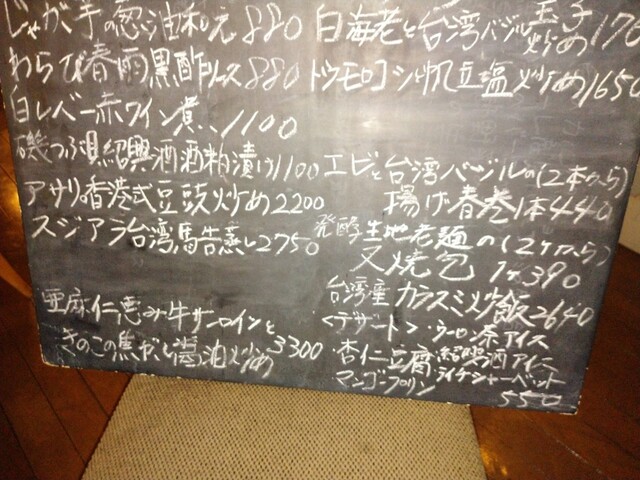 じゃが芋の葱油和え 880
わらび春雨黒酢ソース 880
白レバー赤ワイン煮 1100
磯つぶ貝紹興酒酒粕漬け 1100
アサリの香港式豆豉炒め 2200
スジアラ台湾馬告蒸し 2750
亜麻仁恵み牛サーロインと
きのこの焦がし醤油炒め 3300
白海老と台湾バジル玉子炒め 170
トウモロコシと帆立塩炒め 1650
エビと台湾バジルの(2本から)
揚げ春巻 1本440
発酵生地老麺の(2ケから)
叉焼包 1ケ390
台湾産カラスミ炒飯 2640
<デザート>・ウーロン茶アイス
・杏仁豆腐・紹興酒アイス
マンゴープリン・ライチシャーベット
550